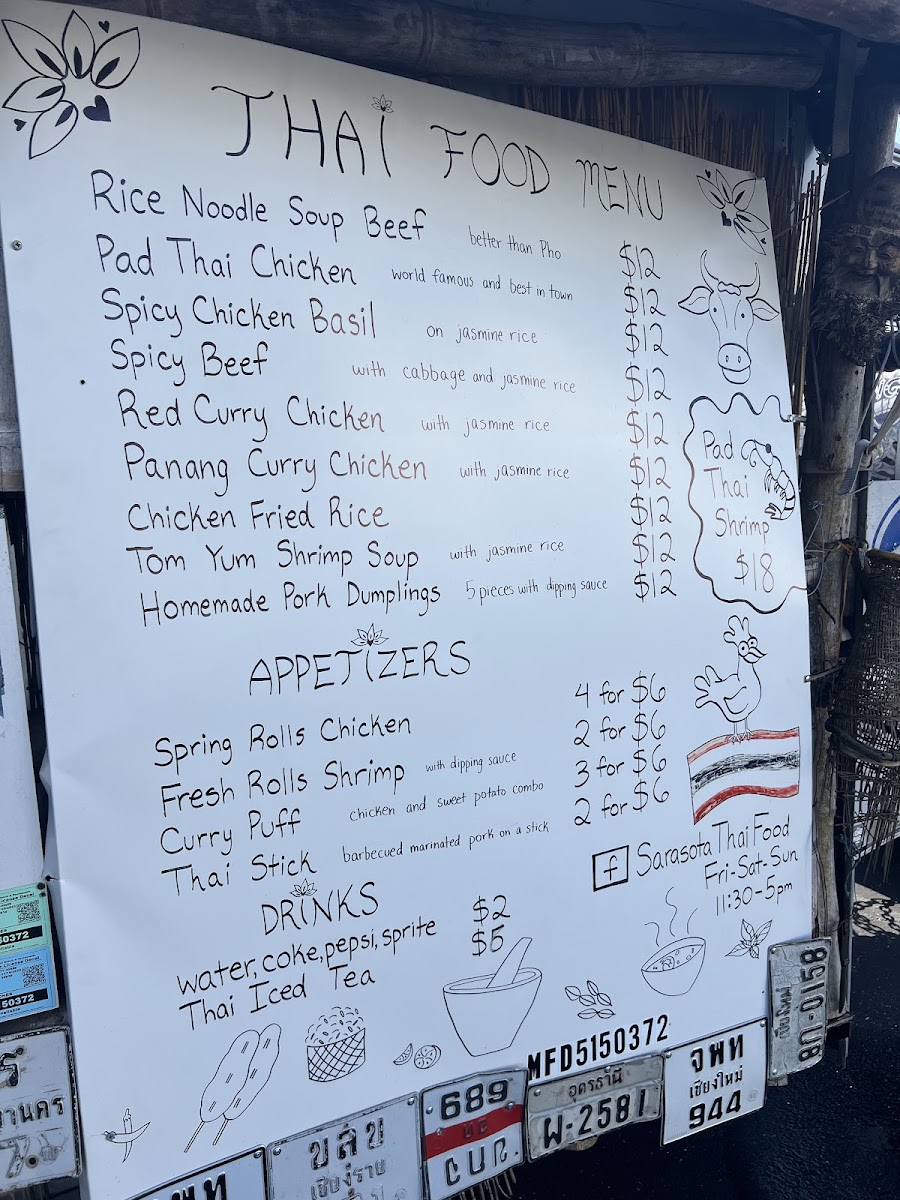 THAi FOOD MENU
Rice Noodle Soup Beef better than Pho $12
Pad Thai Chicken world famous and best in town $12
Spicy Chicken Basil on jasmine rice $12
Spicy Beef with cabbage and jasmine rice $12
Red Curry Chicken with jasmine rice $12
Panang Curry Chicken with jasmine rice $12
Chicken Fried Rice $12
Tom Yum Shrimp Soup with jasmine rice $12
Homemade Pork Dumplings 5 pieces with dipping sauce $12
Pad
Thai
Shrimp
$18
APPETiZERS
Spring Rolls Chicken 4 for $6
Fresh Rolls Shrimp with dipping sauce 2 for $6
Curry Puff chicken and sweet potato combo 3 for $6
Thai Stick barbecued marinated pork on a stick 2 for $6
f Sarasota Thai Food
Fri-Sat-Sun
11:30-5pm
DRiNKS
water, coke, pepsi, sprite $2
Thai Iced Tea $5
MFD5150372
50372
50372
จพท
ขลข
เชียงราย
689
อุดรธานี
ผ-2581
จพท
เชียงใหม่
944
เชียงใหม่
8ก-0158